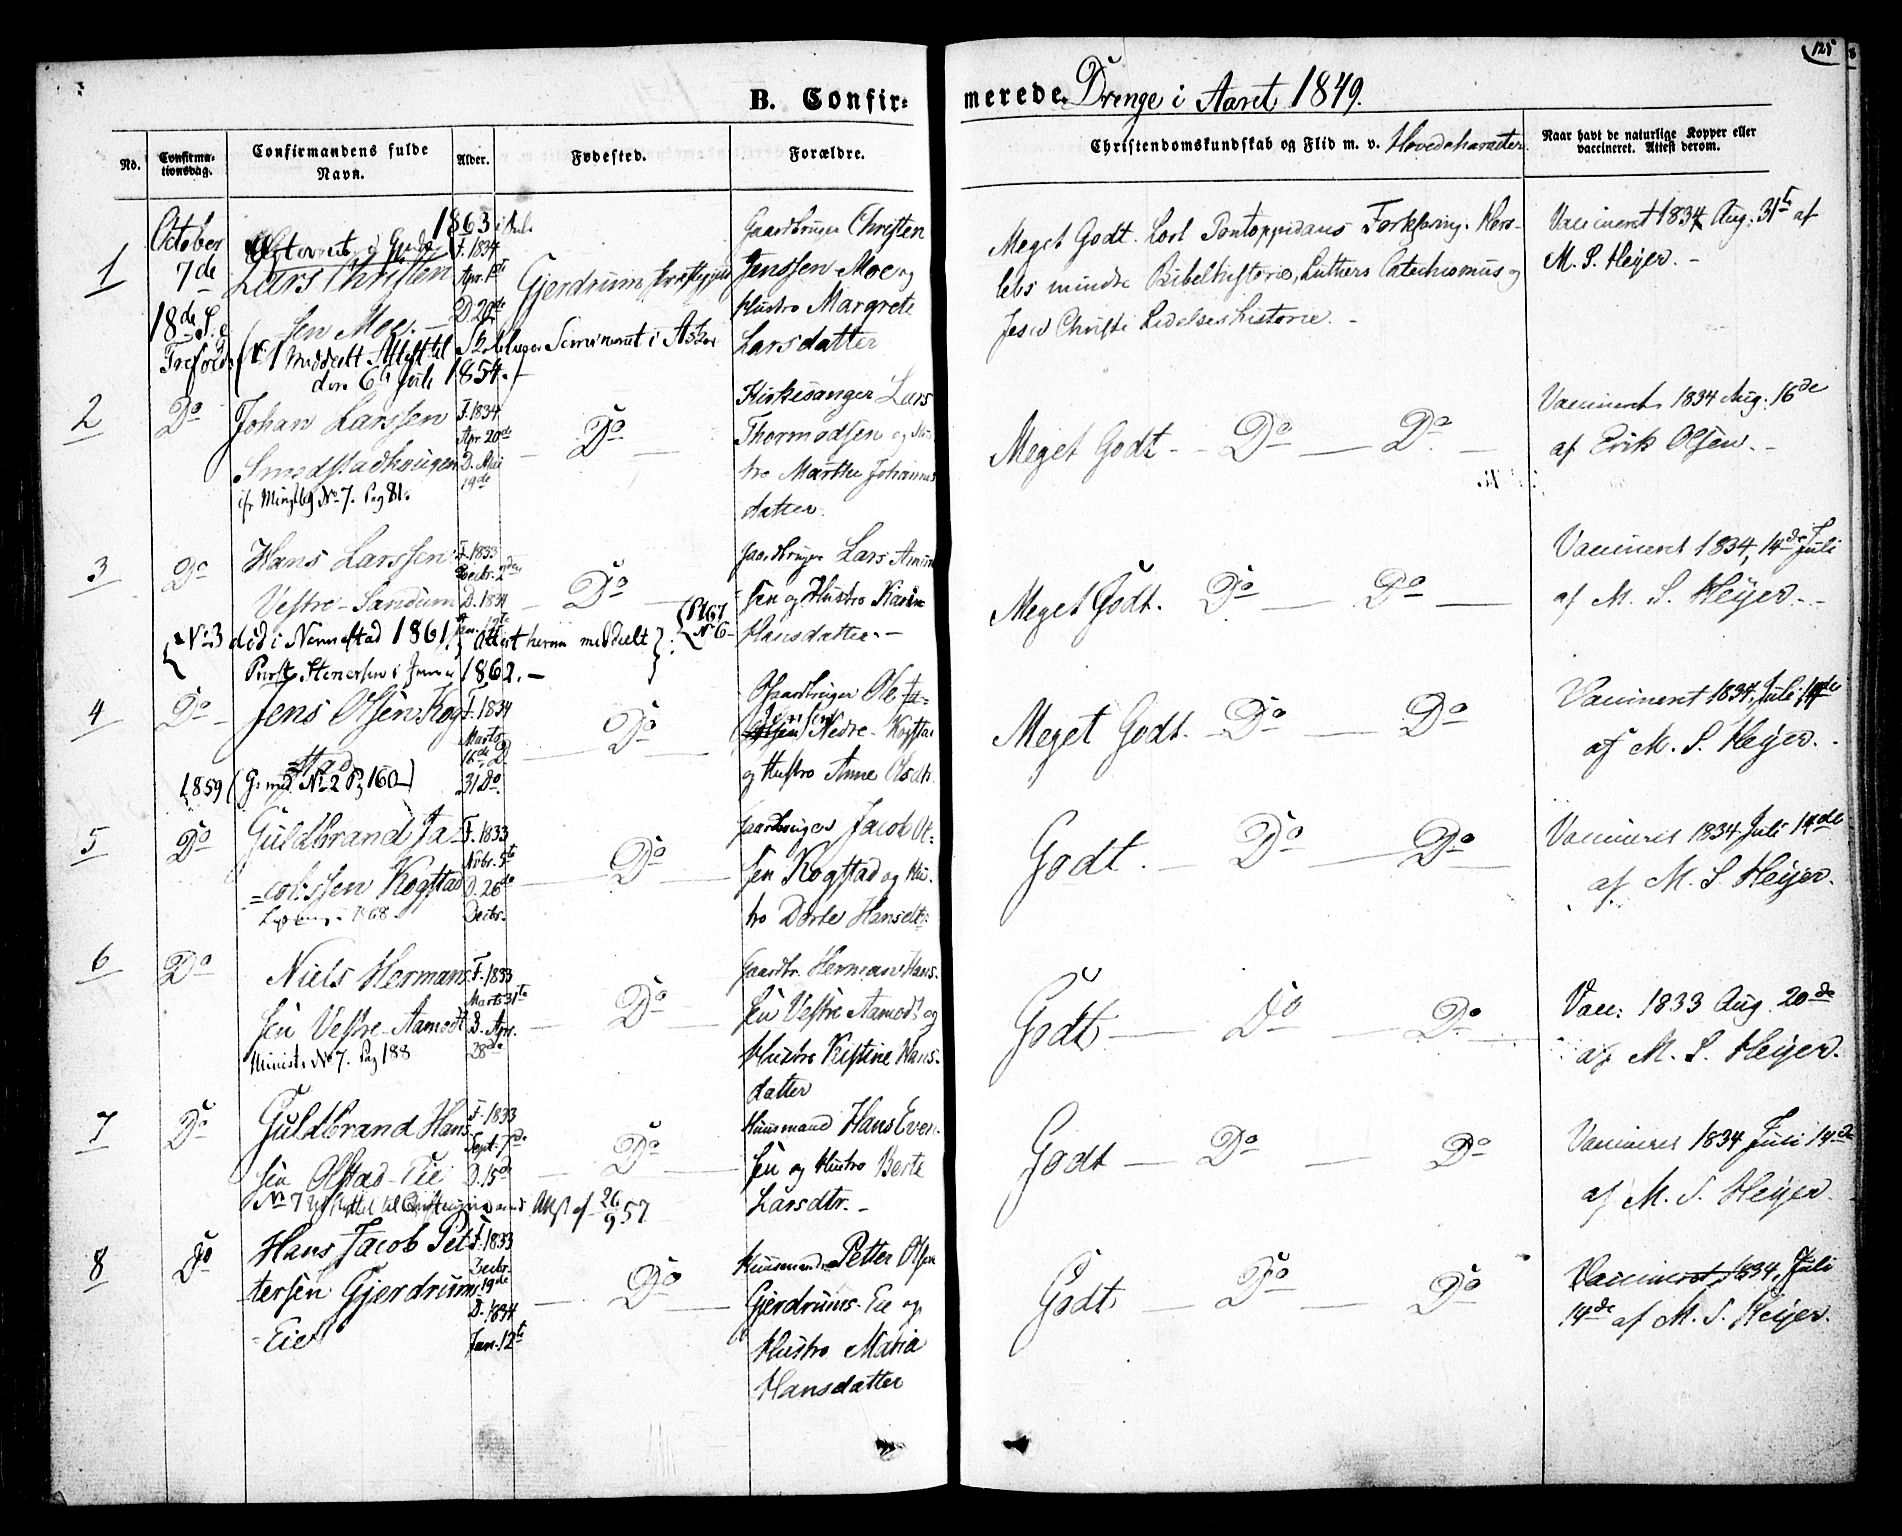 125
B. Confir= merede Drenge i Aaret 1849.
No.
Confirma-
tionsdag.
Confirmandens fulde
Navn.
Alder.
Fødested.
Forældre.
Christendomskundskab og Flid m. v. Hovedcharacter
Naar havt de naturlige Kopper eller
vaccineret. Attest derom.
1
October
7de
18de S. e
Trefold.
1863
Lars Christen
sen Moe. —
F. 1834
Apr.
D. 29de
(No 1 Meddeelt Attest til Skolelærer Seminariet i Asker
den 6te Juli 1854.)
Gjerdrums Præstegjeld
Gaardbruger Christen
Jenssen Moe og
Hustro Margrete
Larsdatter
Meget Godt. Læst Pontoppidans Forklaring. Hers-
lebs mindre Bibelhistorie, Luthers Catechismus og
Jesu Christi Lidelseshistorie. –
Vaccineret 1834 Aug. 31te af
M. S. Heyer. –
2
Do
Johan Larssen
Smedstadhougen
F. 1834
Apr 20de
D. Mai
19de
No 7. Pag 81.
Do
Kirkesanger Lars
Thormodsen og Hus
tro Marthe Johannes
datter.
Meget Godt - Do — Do -
Vaccineret 1834 Aug. 16de
af Erik Olsen. -
3
Do
Hans Larssen
Vestre-Sandum
F. 1833
Decbr. 2
D. 1834
Do
Gaardbruger Lars Amund
sen og Hustro Karen
Hansdatter. –
{No 3 død i Nannestad 1861,} Attest herom meddelt }
Præst Stenersen i 1862. –
{P 167
N 6
Meget Godt. Do — Do —
Vaccineret 1834, 14de Juli
af M. S. Heyer. -
4
Do
Jens Olsen Kog
=stad
F. 1834
Marts
16de D
31 Do.
1859 (G: med No 2 Pag 160—)
Do
Gaardbruger Ole
Nedre-Kogstad
og Hustro Anne Olsdtr.
Meget Godt. Do — Do
Vaccineret 1834, Juli 14de
af M. S. Heyer.
5
Do
Guldbrand Ja=
=cobssen Kogstad
F. 1833
Novbr. 5te
D. 26de
Decbr.
1868
Do
Gaardbruger Jacob Ol=
sen Kogstad og Hu.
tro Dorte Hansdtr.
Godt. — Do — Do —
Vaccineret 1834 Juli 14de
af M. S Heyer.
6
Do
Niels Hermans
sen Vestre-Aamodt
F. 1833
Marts 31te
D. Apr.
28de
Minist: No 7. Pag 188
Do
Gaardbr. Herman Hans-
sen Vestre Aamodt og
Hustro Kristine Hans-
datter
Godt — Do — Do —
Vacc: 1833 Aug. 20de
af M. S. Heyer.
7
Do
Guldbrand Hans
sen Olstad-Eie
F. 1833
Sept. 7de
D. 15de
No 7 Attest af 26/9 57
Do
Huusmand Hans Even-
sen og Hustro Berte
Larsdtr. –
Godt — Do — Do
Vaccineret 1834 Juli 14de
af M. S. Heyer
8
Do
Hans Jacob Pet
-tersen Gjerdrum
-Eie
F. 1833
Decbr.
19de
D. 1834
Jan. 12te
Do
Huusmand Petter Olsen
Gjerdrums-Eie og
Hustro Maria
Hansdatter
Godt — Do — Do
Vaccineret, 1834, Juli
14de af M. S. Heyer.